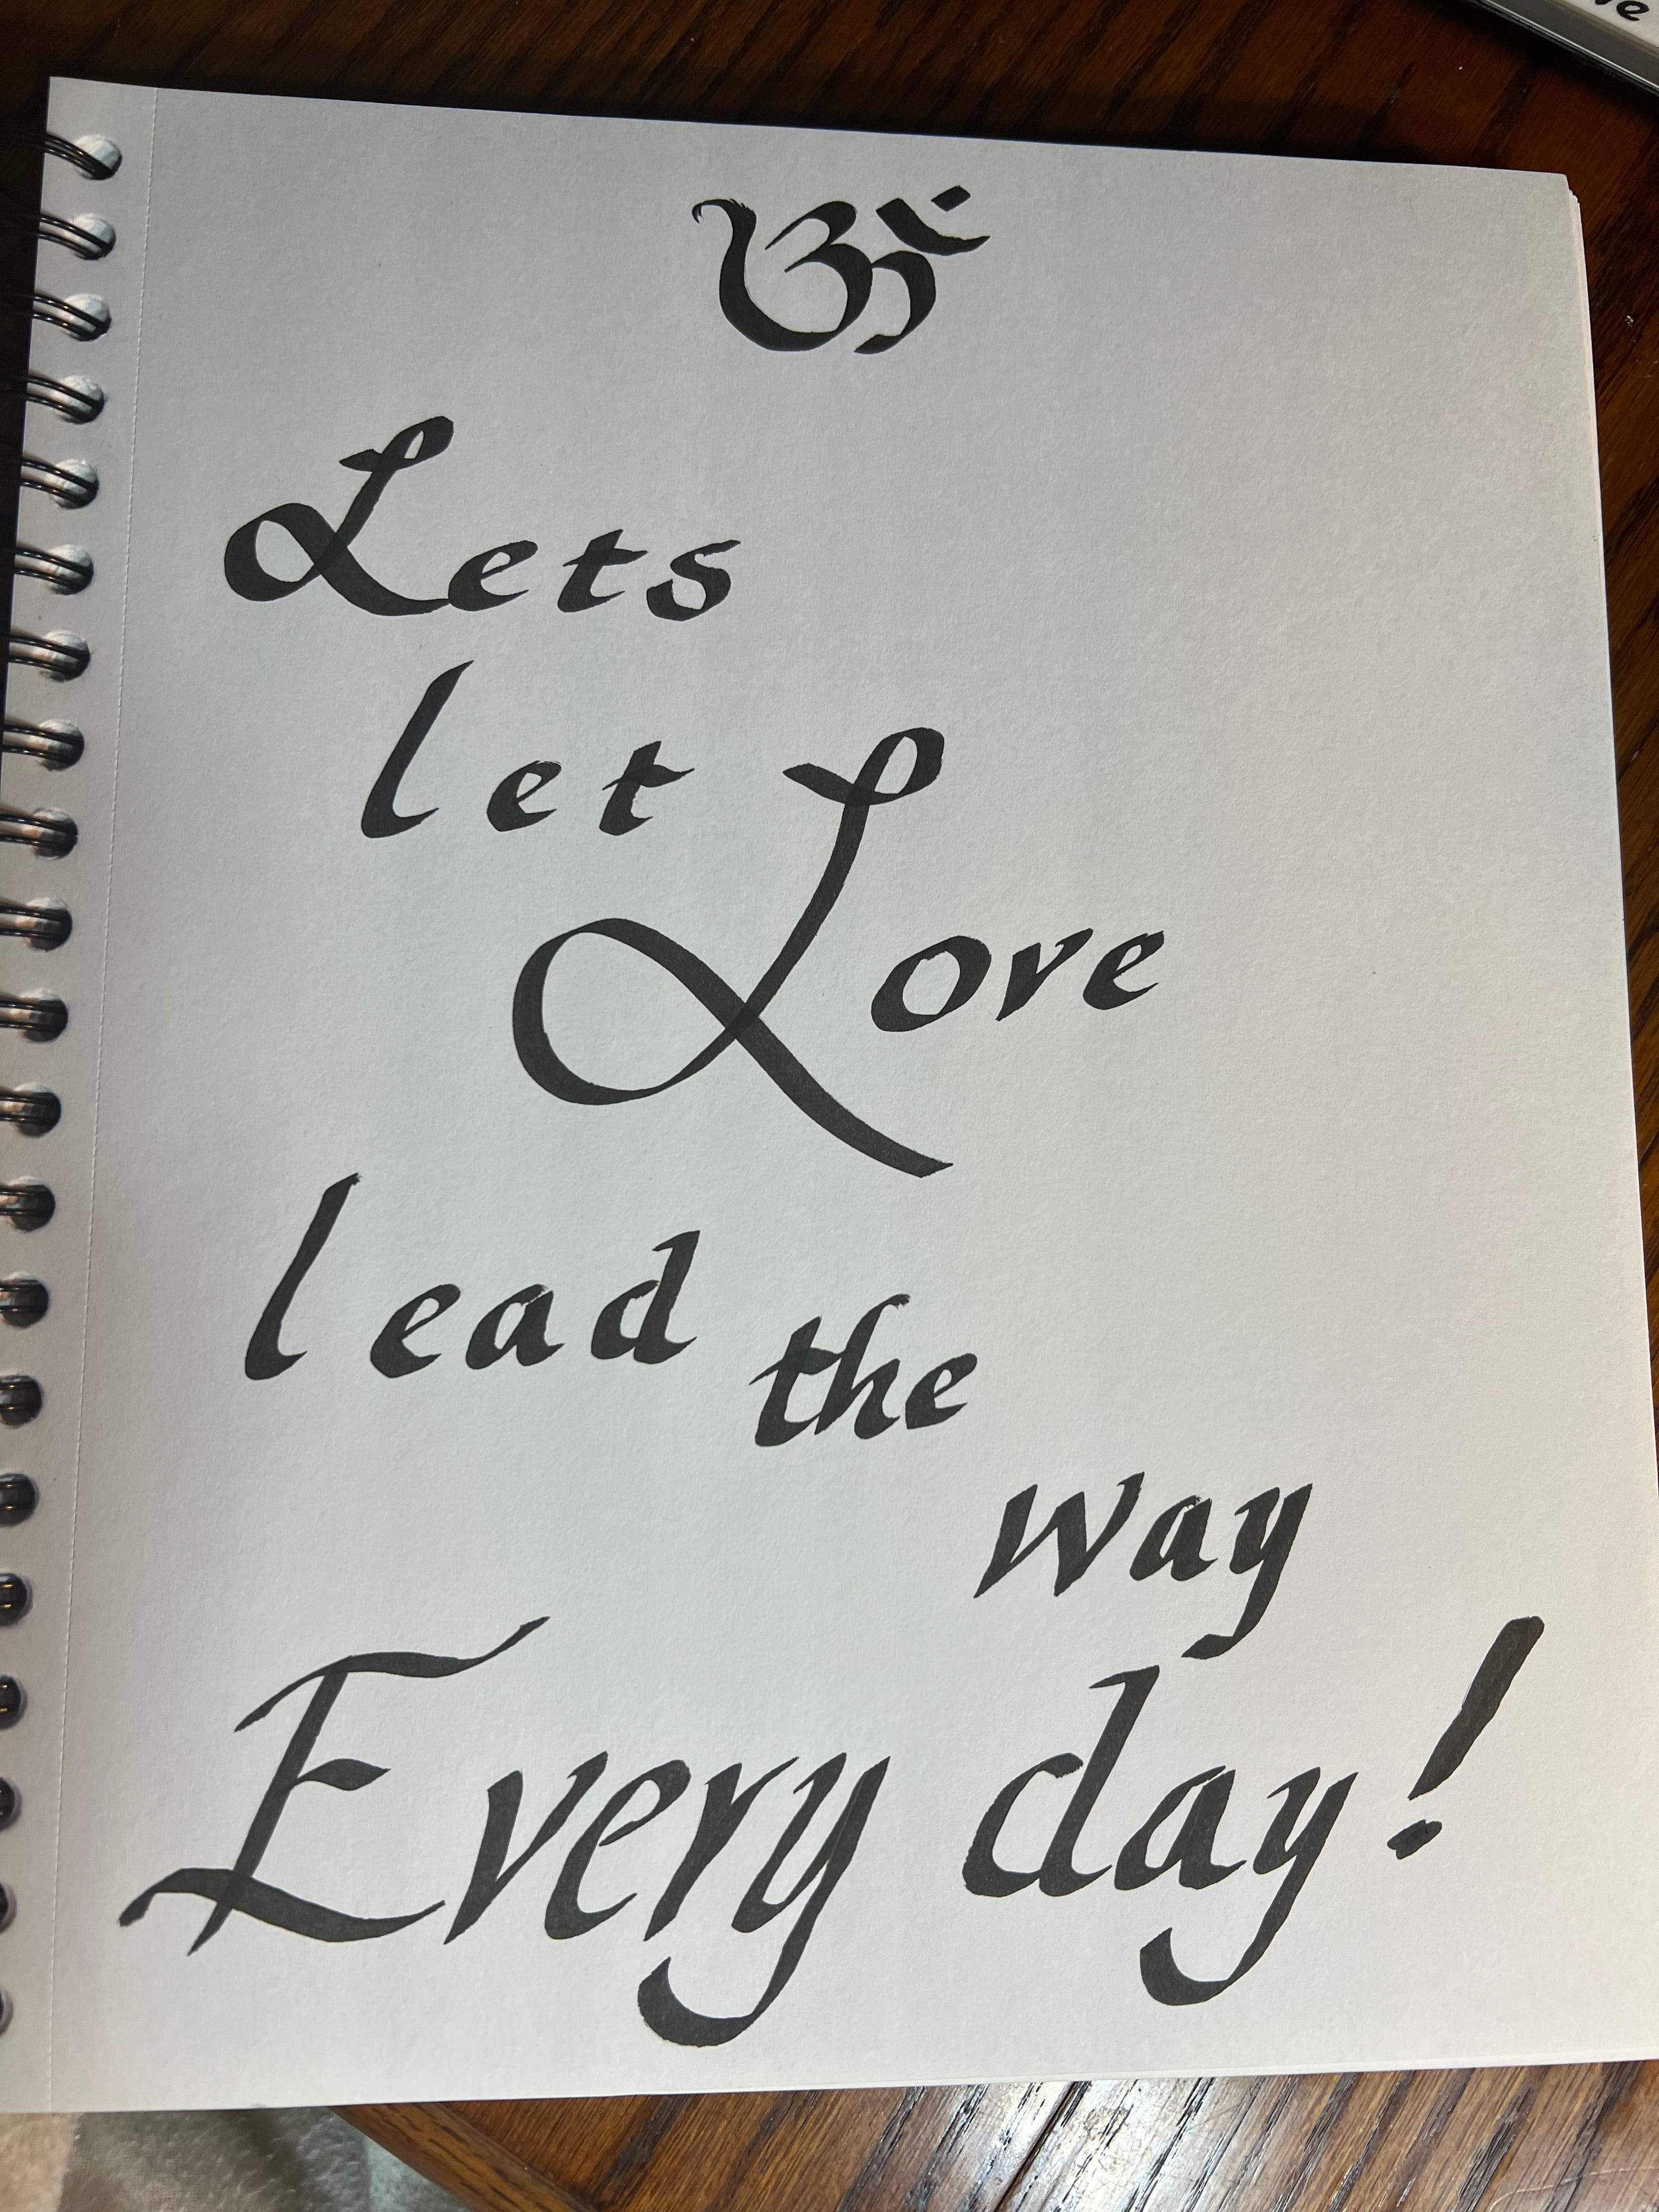 ॐ
Lets
let Love
lead the
way
Every day!